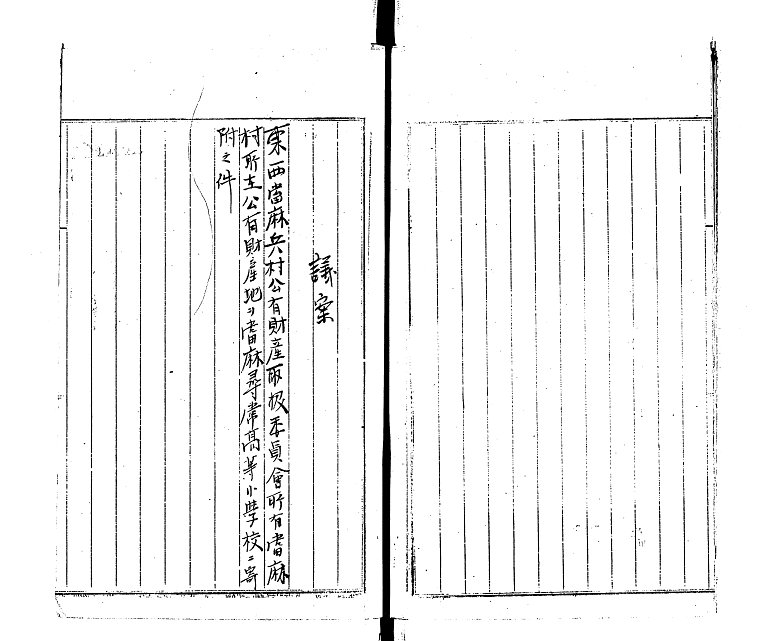 議案
東西當麻兵村公有財産取扱委員會所有當麻
村所在公有財産地ヲ當麻尋常高等小學校ニ寄
附之件